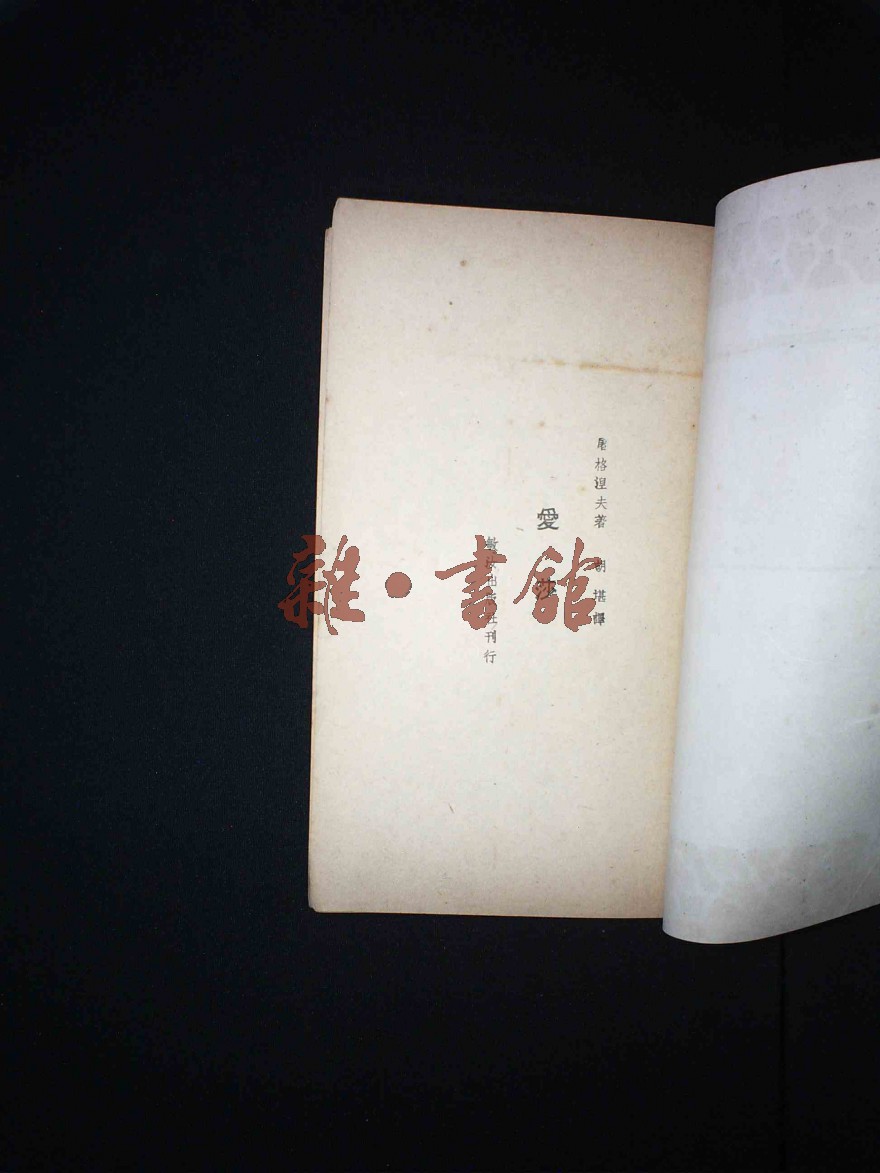 屠格涅夫著 胡堪譯
愛莎
社刊行
雜·書館